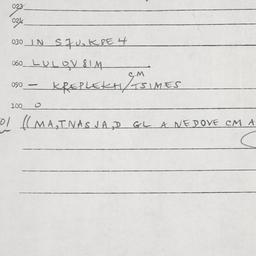 023
024
030 IN S7U.KPE4
060 LULOV SIM
CM
090 – KREPLEKH/TSIMES
100 O
01 ((MA,TNASJA,D GL A NEDOVE CM A